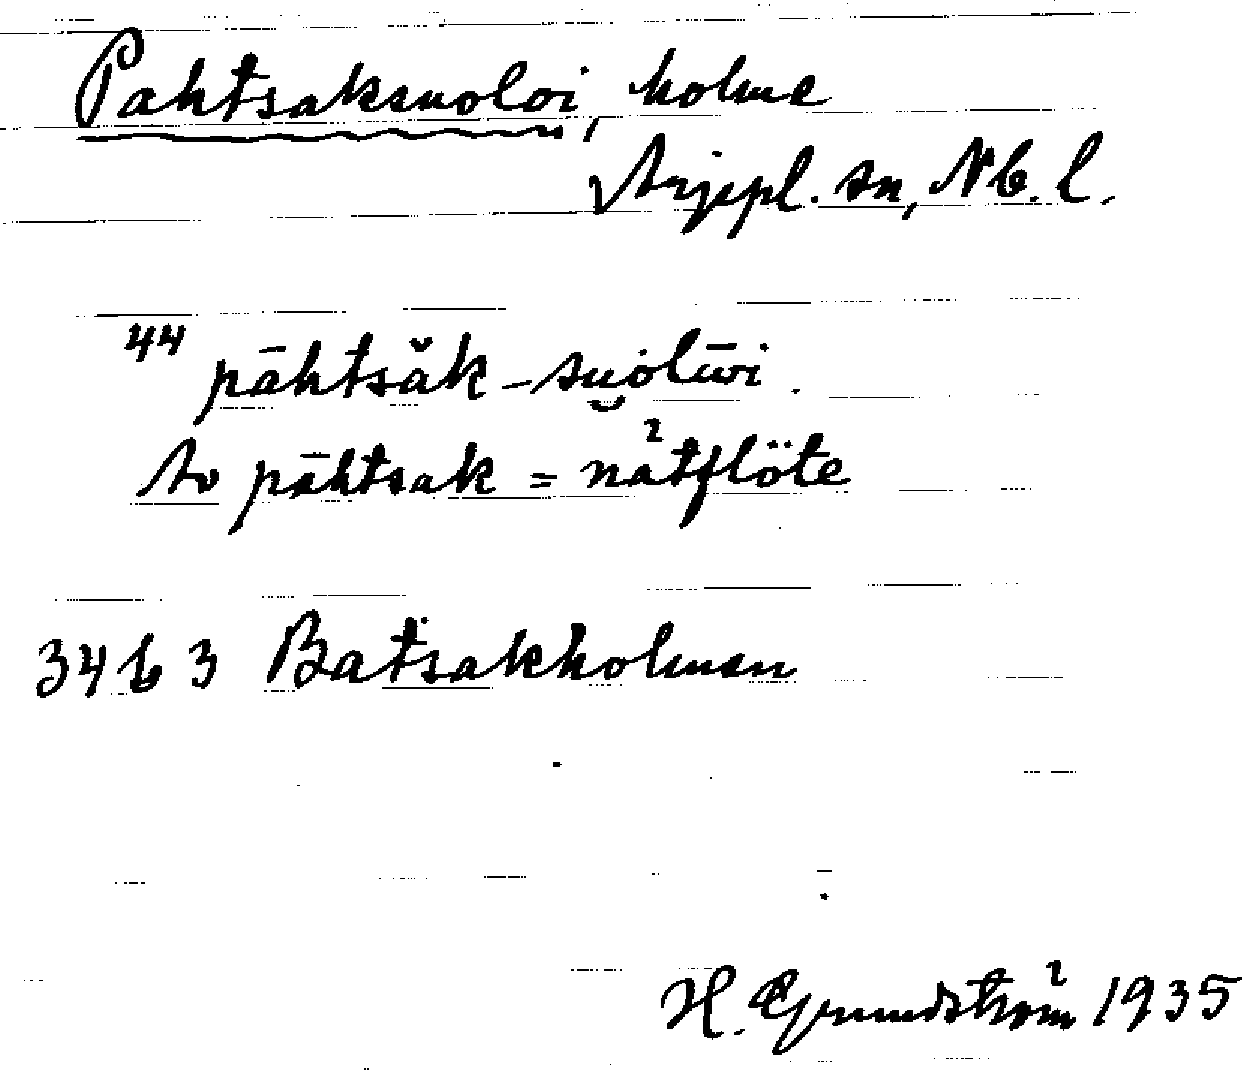 Pahtsaksuoloi, holme
Arjepl. sn, Nb. l.
44 pāhtsǎk-su̮ölūi.
Av pāhtsak = nätflöte
3463 Batsakholmen
H. Grundström 1935